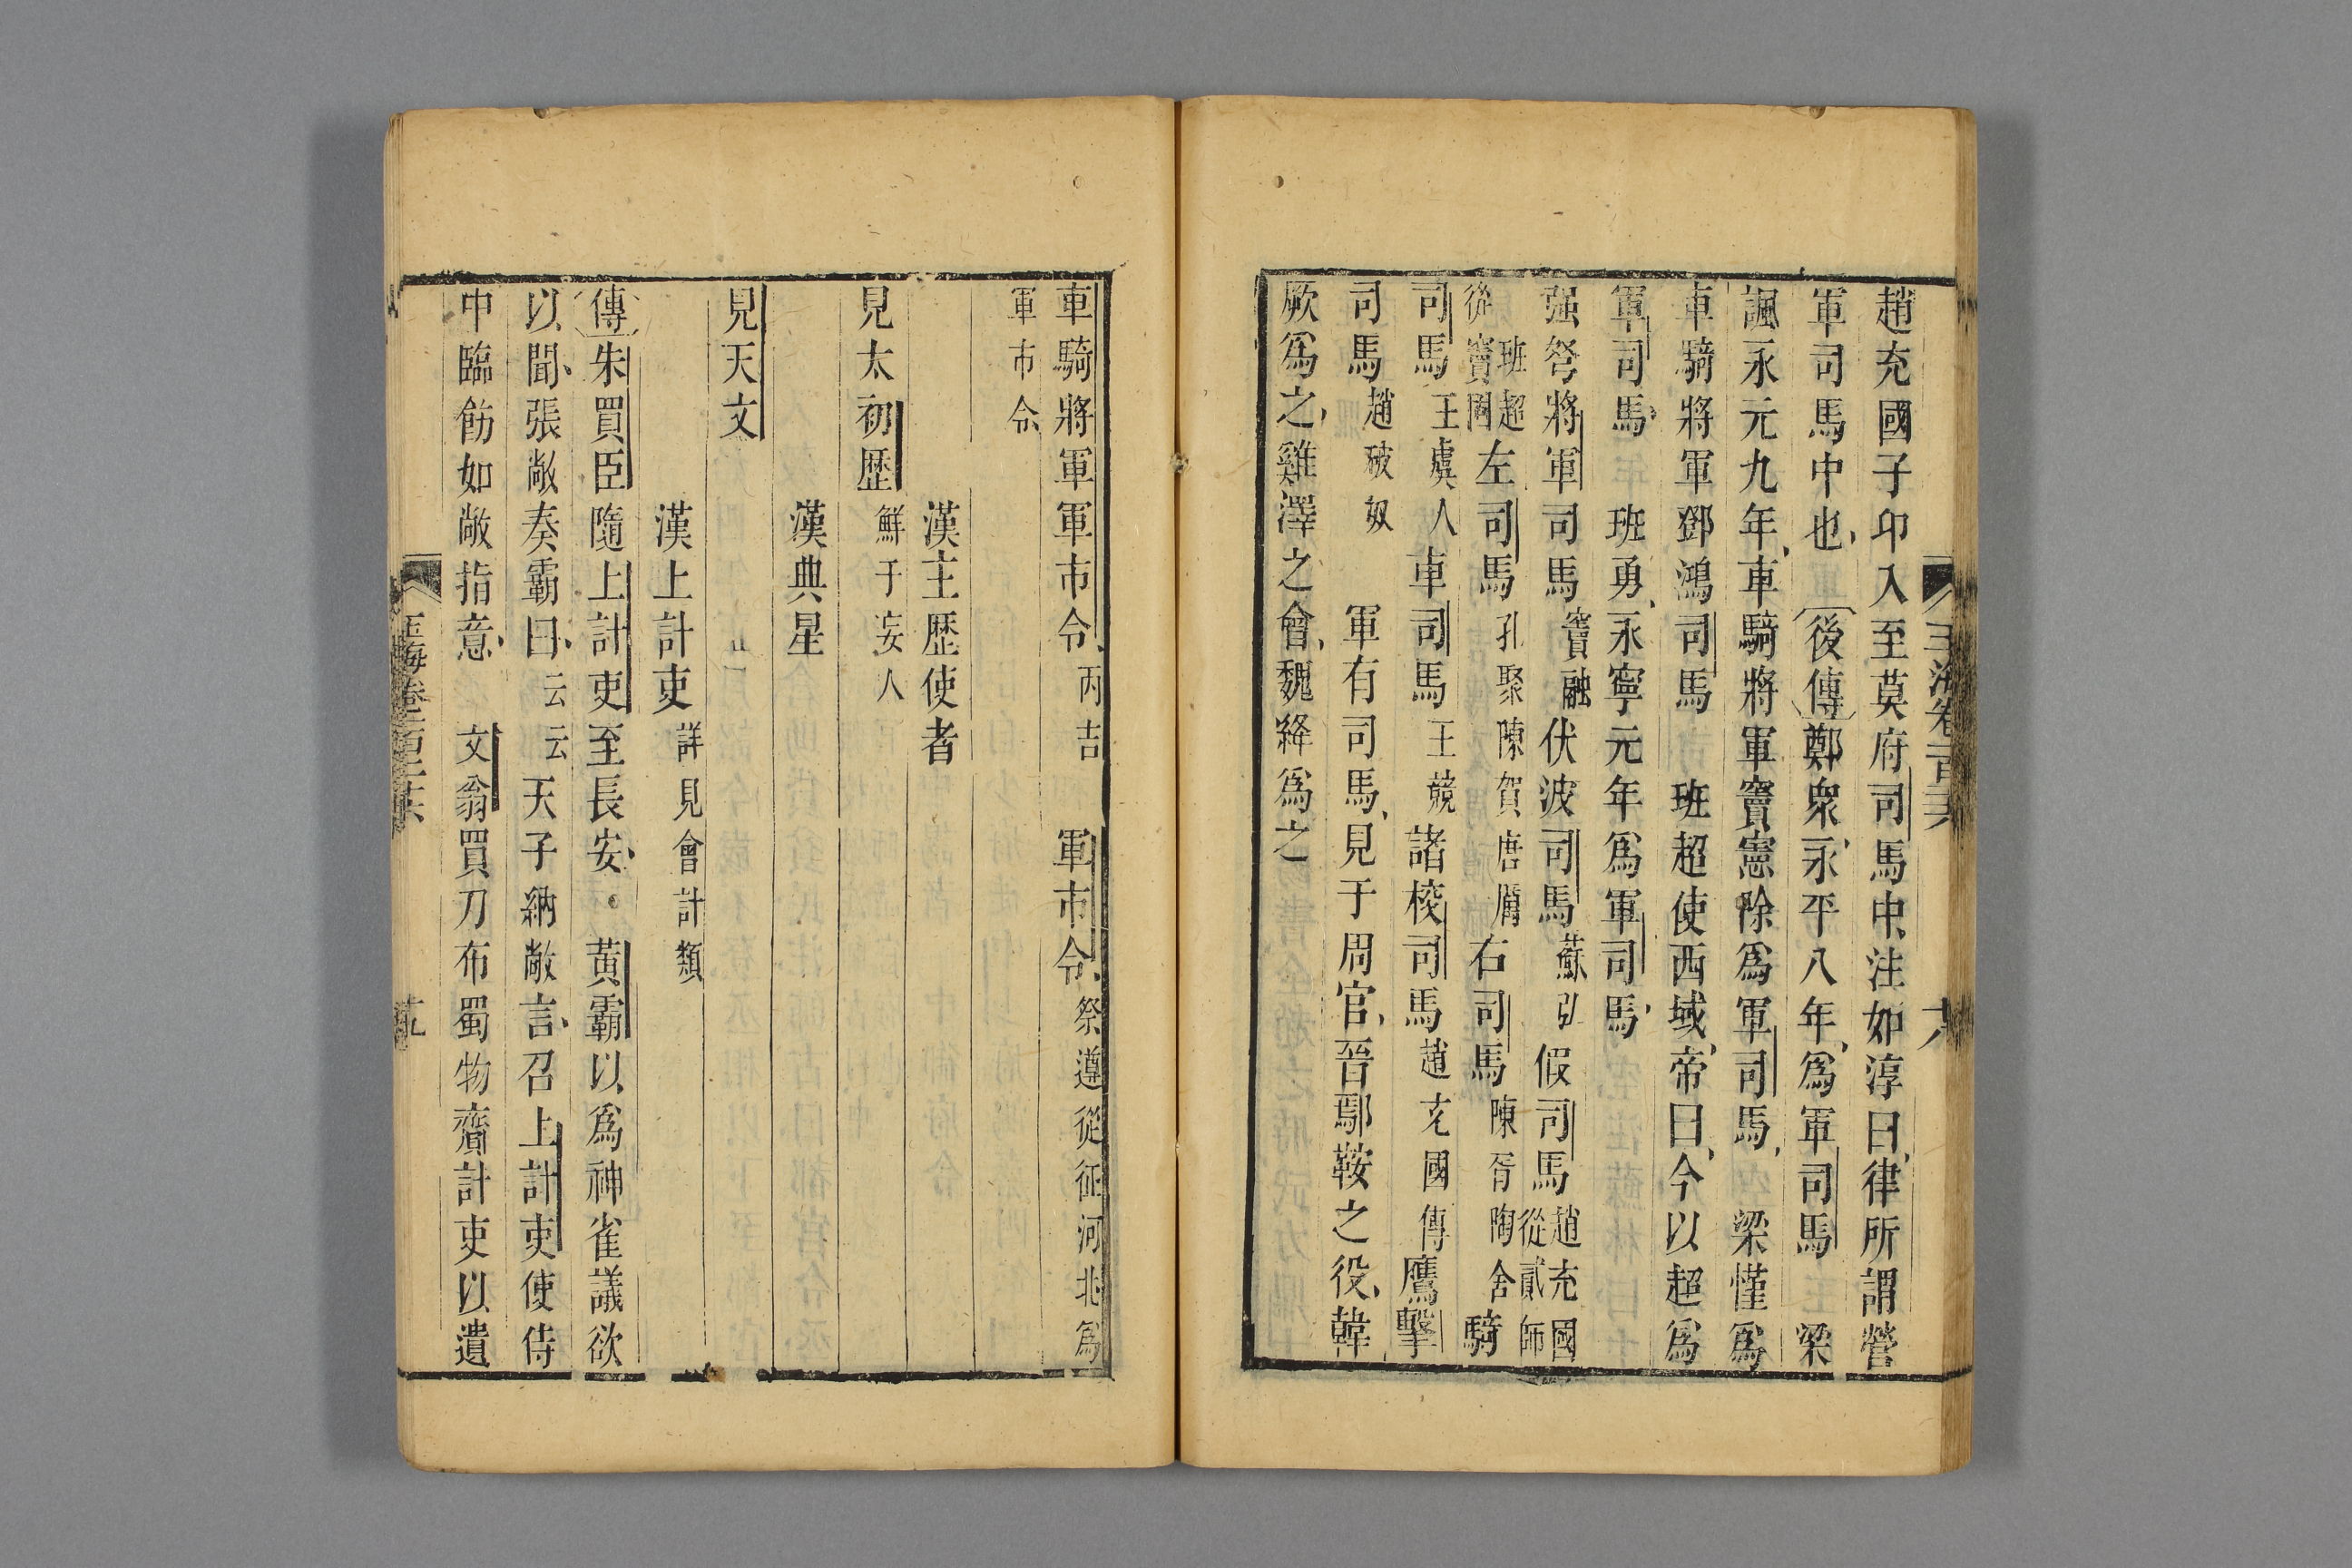 趙充國子卬入至莫府司馬中注如淳曰律所謂營
軍司馬中也後傳鄭衆永平八年爲軍司馬梁
諷永元九年車騎將軍竇憲除爲軍司馬梁慬爲
車騎將軍鄧鴻司馬班超使西域帝曰今以超爲
軍司馬班勇永寧元年爲軍司馬
强弩將軍司馬竇融伏波司馬蘇弘假司馬趙充國從貳師
班超從竇固左司馬孔聚陳賀唐厲右司馬陳胥陶舍騎
司馬王虞人車司馬王競諸校司馬趙充國傳鷹擊
司馬趙破奴軍有司馬見于周官晉鄢鞍之役韓
厥爲之雞澤之會魏絳爲之
車騎將軍軍市令丙吉軍市令祭遵從征河北爲
軍市令
漢主歷使者
見太初歷鮮于妄人
漢典星
見天文
漢上計吏詳見會計類
傳朱買臣隨上計吏至長安黃霸以爲神雀議欲
以聞張敞奏霸曰云云天子納敞言召上計吏使侍
中臨飭如敞指意文翁買刀布蜀物齎計吏以遺